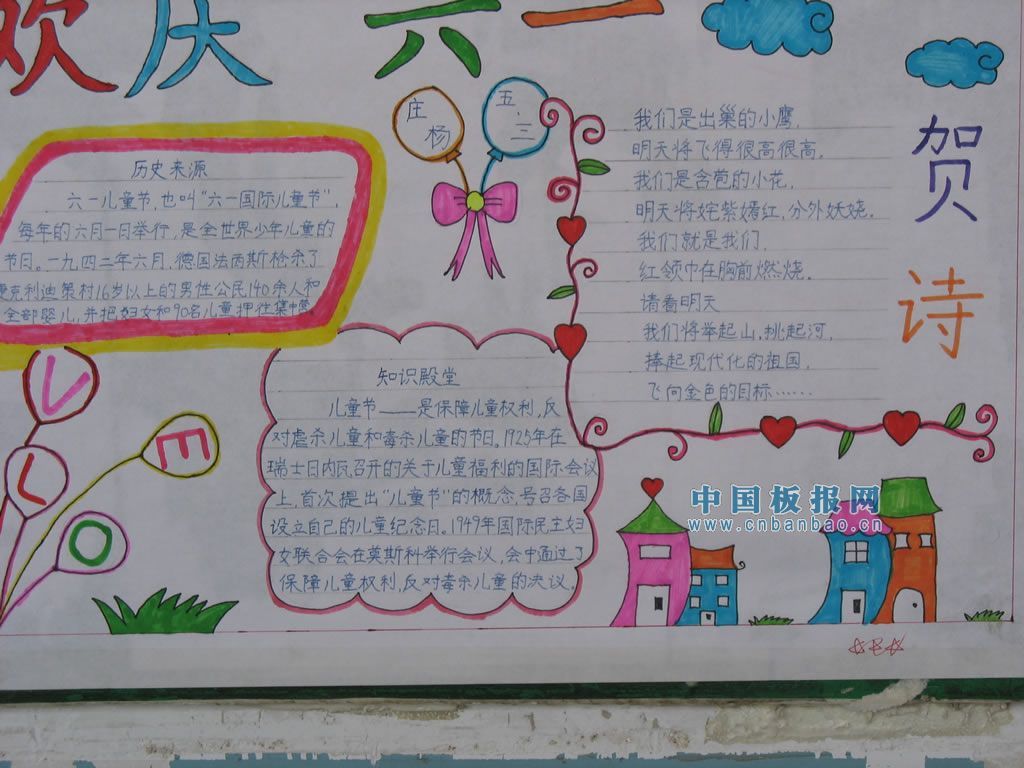 欢庆六一
庄
杨
五.三
历史来源
六一儿童节,也叫“六一国际儿童节”,
每年的六月一日举行,是全世界少年儿童的
节日。一九四二年六月,德国法西斯枪杀了
捷克利迪策村16岁以上的男性公民140余人和
全部婴儿,并把妇女和90名儿童押往集中营
我们是出巢的小鹰,
明天将飞得很高很高,
我们是含苞的小花,
明天将姹紫嫣红,分外妖娆.
我们就是我们,
红领巾在胸前燃烧.
请看明天
我们将举起山,挑起河,
捧起现代化的祖国,
飞向金色的目标……
贺诗
知识殿堂
儿童节——是保障儿童权利,反
对虐杀儿童和毒杀儿童的节日。1925年在
瑞士日内瓦召开的关于儿童福利的国际会议
上,首次提出“儿童节”的概念,号召各国
设立自己的儿童纪念日。1949年国际民主妇
女联合会在莫斯科举行会议,会中通过了
保障儿童权利,反对毒杀儿童的决议。
V
E
L
O
中国板报网
www.cnbanbao.cn